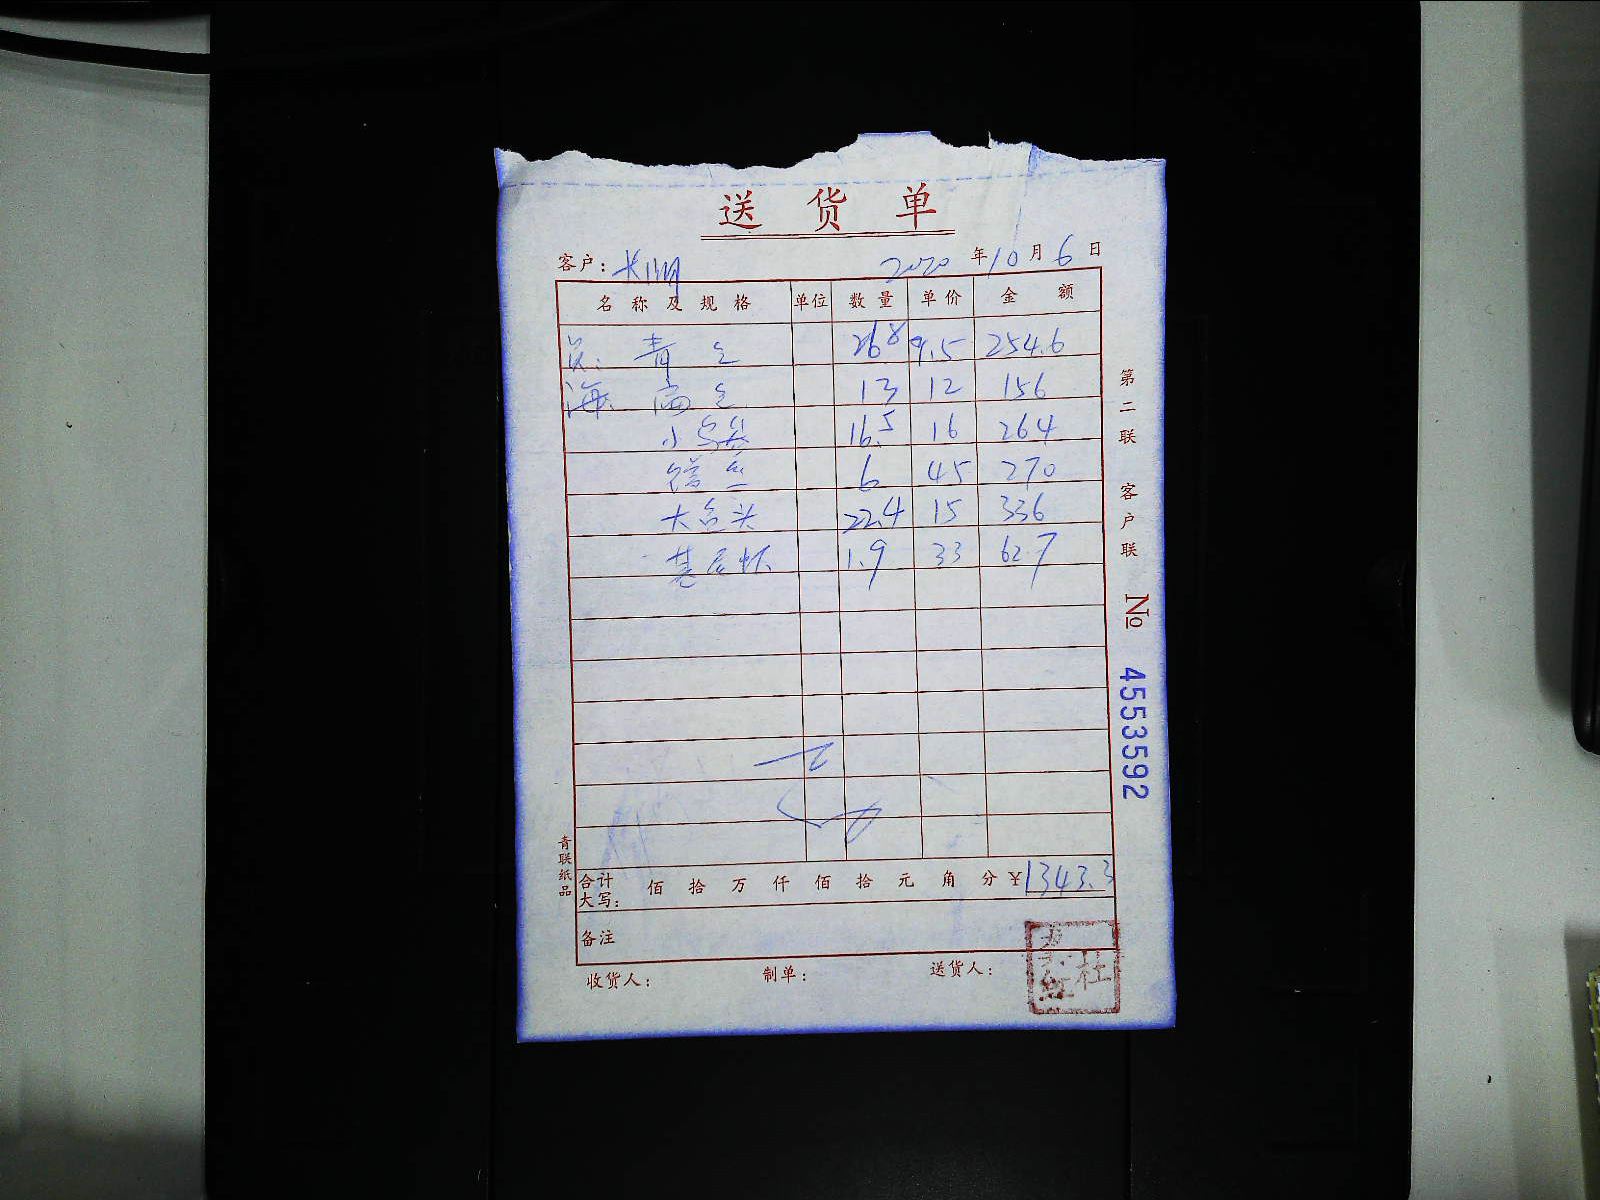 送货单
客户: 2020年10月6日
名称及规格 单位 数量 单价 金额
青 26.8 9.5 254.6
海 13 12 156
小 16.5 16 264
6 45 270
大 头 22.4 15 336
基尾 1.9 33 62.7
合计大写: 佰拾万仟佰拾元角分 ¥1343.3
备注
收货人: 制单: 送货人:
红杜
第二联 客户联 No 4553592
青联纸品